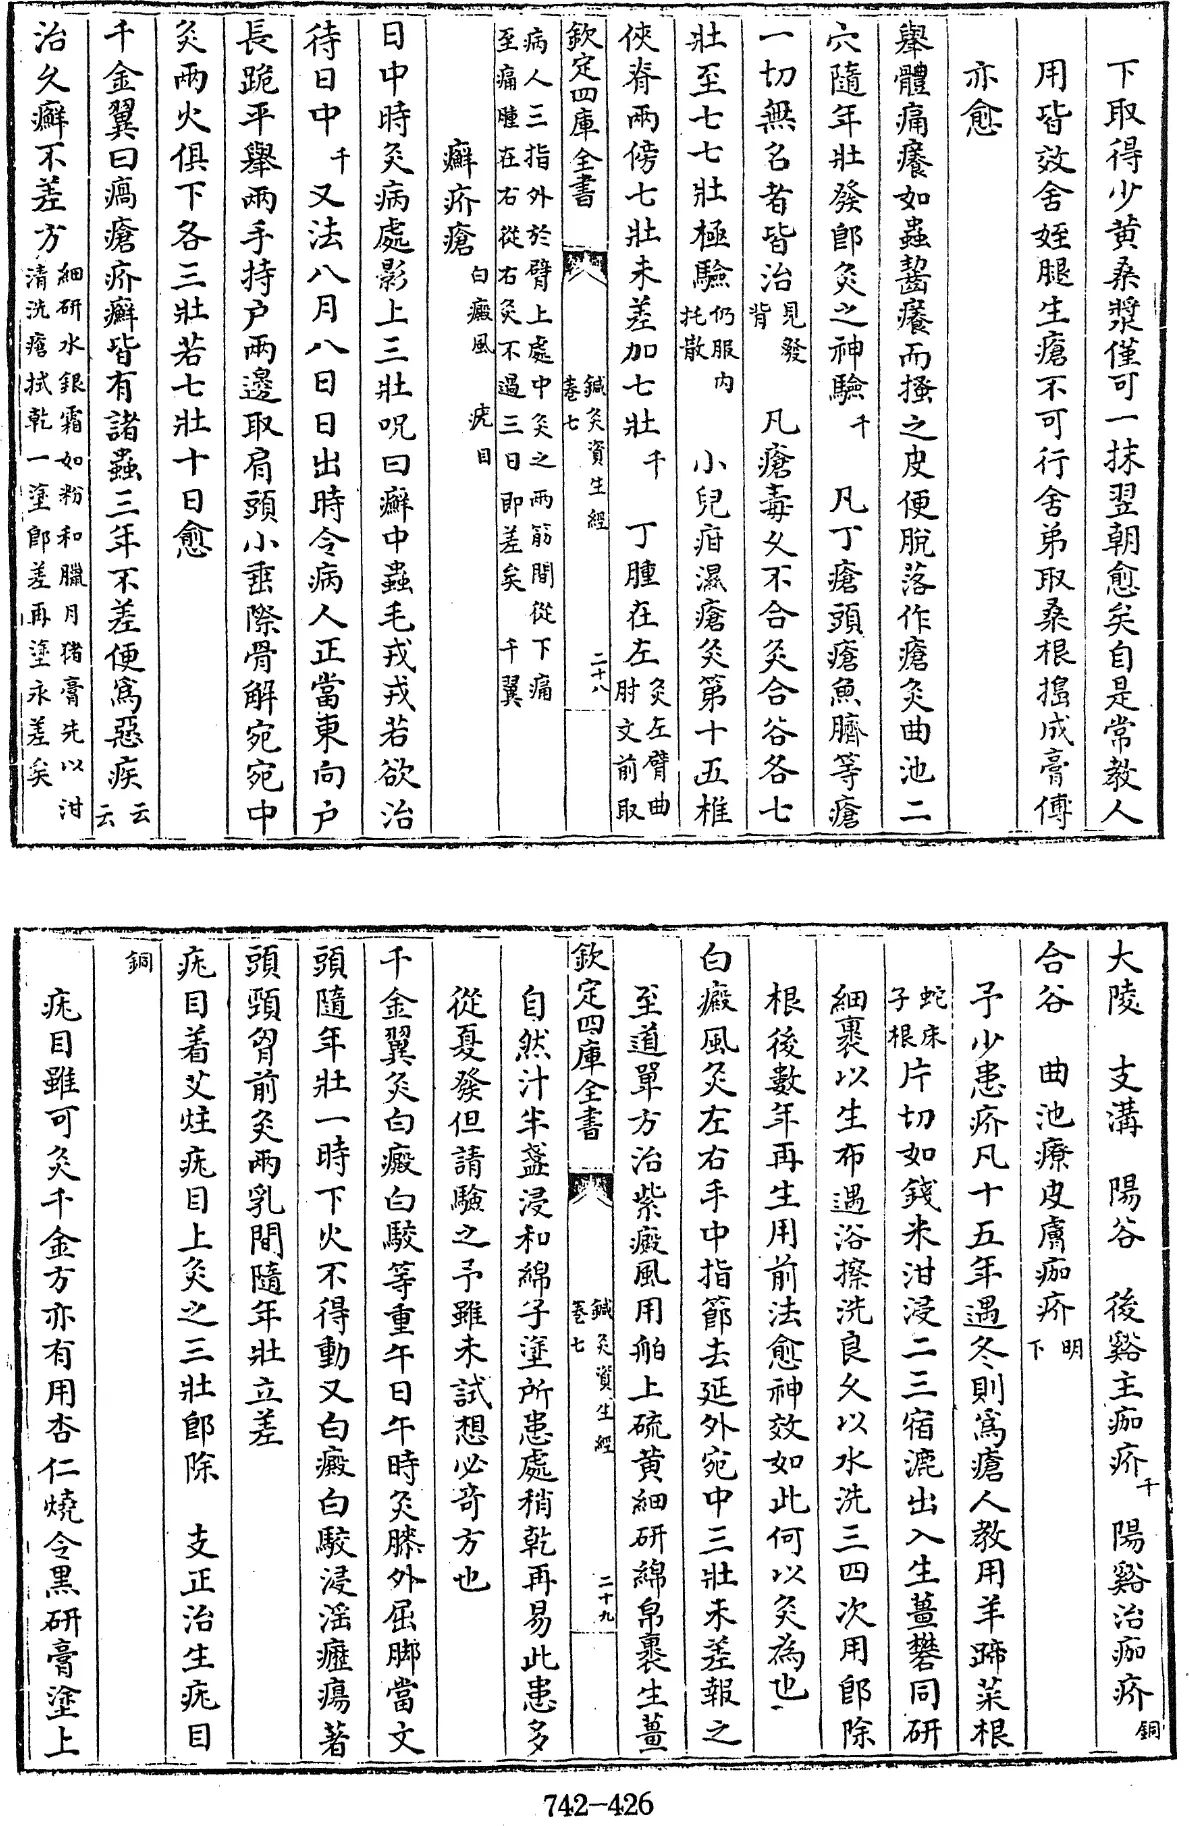 下取得少黄桑漿僅可一抹翌朝愈矣自是常教人
用皆效舍姪腿生瘡不可行舍弟取桑根搗成膏傅
亦愈
舉體痛癢如蟲齧癢而搔之皮便脫落作瘡灸曲池二
穴隨年壯發即灸之神驗千 凡丁瘡頭瘡魚臍等瘡
一切無名者皆治見發背 凡瘡毒久不合灸合谷各七
壯至七七壯極驗仍服内托散 小兒疳濕瘡灸第十五椎
俠脊兩傍七壯未差加七壯千 丁腫在左灸左臂曲肘文前取
欽定四庫全書 鍼灸資生經卷七 二十八
病人三指外於臂上處中灸之兩筋間從下痛至痛腫在右從右灸不過三日即差矣千翼
癬疥瘡白癜風 疣目
日中時灸病處影上三壯呪曰癬中蟲毛戎戎若欲治
待日中千 又法八月八日日出時令病人正當東向户
長跪平舉兩手持户兩邊取肩頭小垂際骨解宛宛中
灸兩火俱下各三壯若七壯十日愈
千金翼曰瘑瘡疥癬皆有諸蟲三年不差便爲惡疾云云
治久癬不差方細研水銀霜如粉和臘月猪膏先以泔清洗瘡拭乾一塗即差再塗永差矣
大陵 支溝 陽谷 後谿主痂疥千 陽谿治痂疥銅
合谷 曲池療皮膚痂疥明下
予少患疥凡十五年遇冬則爲瘡人教用羊蹄菜根
蛇床子根片切如錢米泔浸二三宿漉出入生薑礬同研
細裹以生布遇浴擦洗良久以水洗三四次用即除
根後數年再生用前法愈神效如此何以灸為也
白癜風灸左右手中指節去延外宛中三壯未差報之
至道單方治紫癜風用舶上硫黄細研綿帛裹生薑
欽定四庫全書 鍼灸資生經卷七 二十九
自然汁半盞浸和綿子塗所患處稍乾再易此患多
從夏發但請驗之予雖未試想必奇方也
千金翼灸白癜白駮等重午日午時灸膝外屈脚當文
頭隨年壯一時下火不得動又白癜白駮浸淫癧瘍著
頭頸胷前灸兩乳間隨年壯立差
疣目着艾炷疣目上灸之三壯即除 支正治生疣目
銅
疣目雖可灸千金方亦有用杏仁燒令黒研膏塗上
742-426